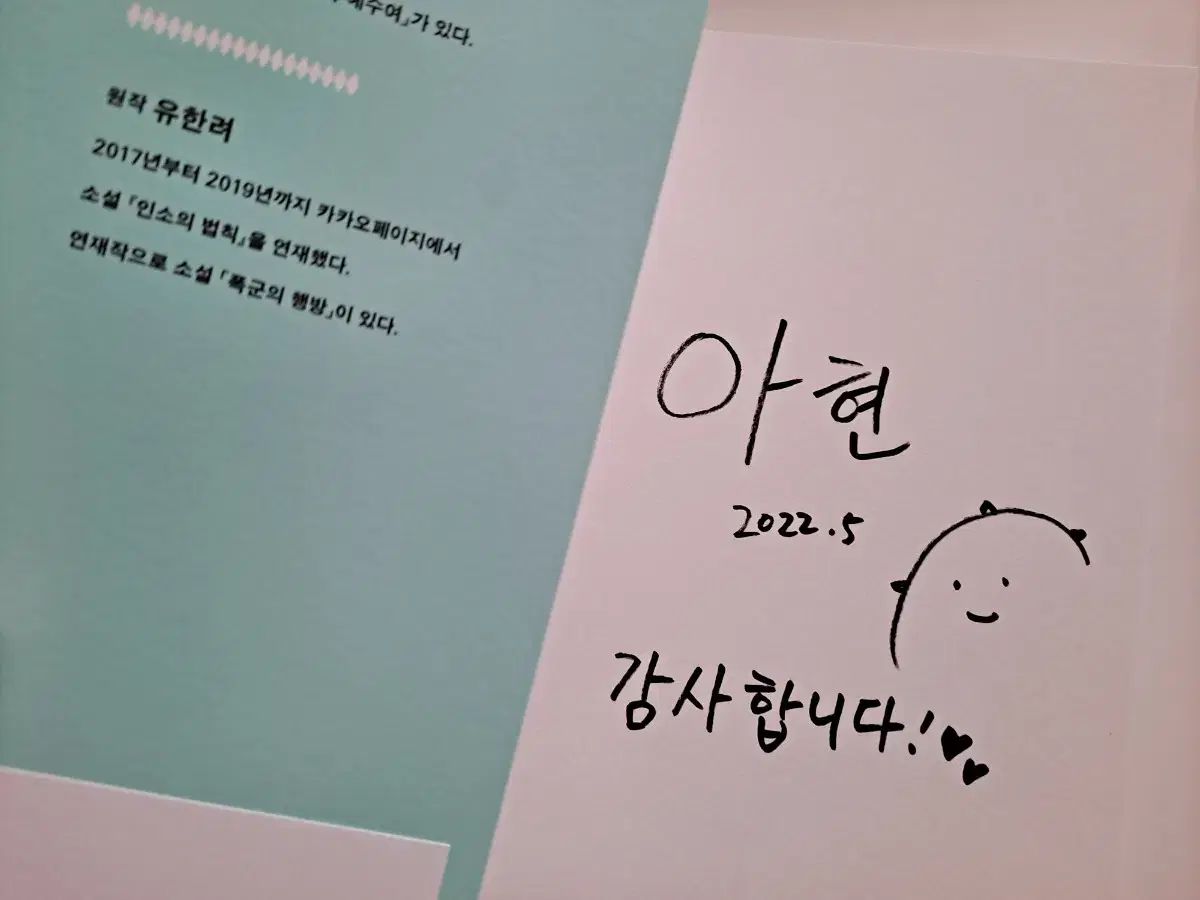 수여』가 있다.
원작 유한려
2017년부터 2019년까지 카카오페이지에서
소설 『인소의 법칙』을 연재했다.
연재작으로 소설 『폭군의 행방』이 있다.
아현
2022.5
감사합니다!♥♥